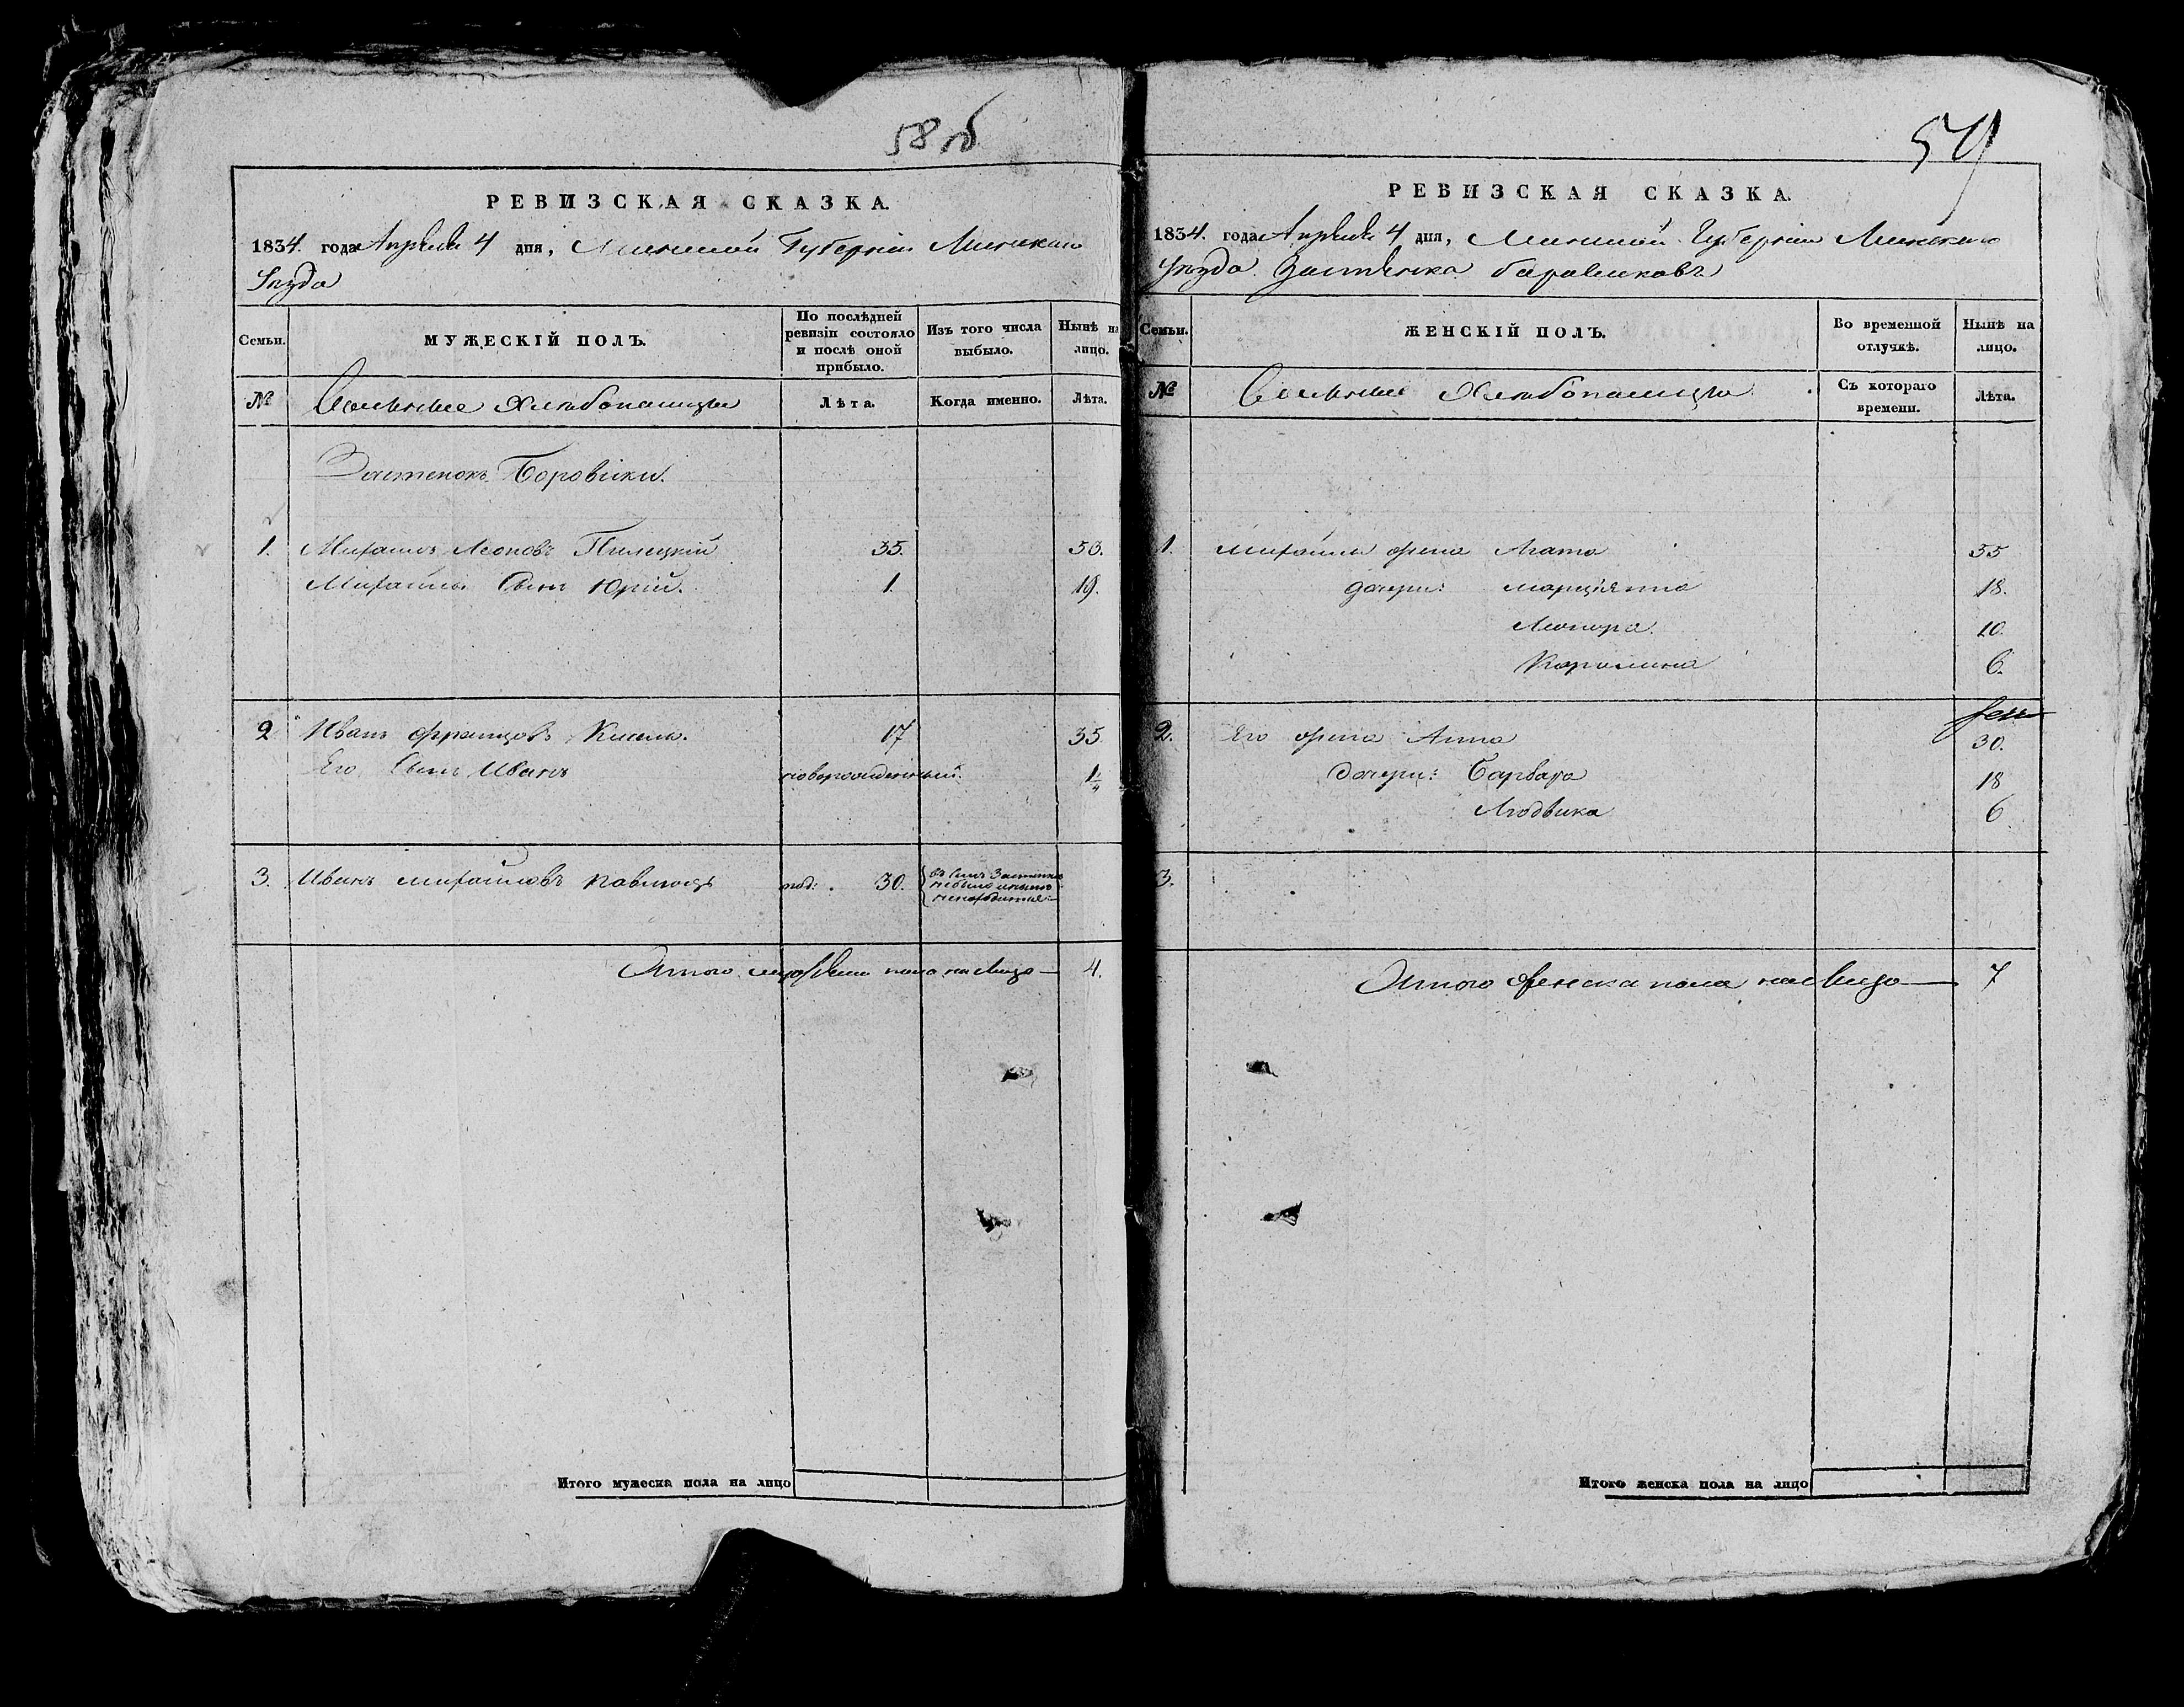 58 об
РЕВИЗСКАЯ СКАЗКА.
1834. года Апреля 4 дня, Минской Губерніи Минскаго
Уезда
Семьи.
МУЖЕСКІЙ ПОЛЪ.
По послѣдней ревизіи состояло и послѣ оной прибыло.
Изъ того числа выбыло.
Нынѣ на лицо.
№
Вольные Хлебопашцы
Лѣта.
Когда именно.
Лѣта.
Застенокъ Боровики.
1. Михаилъ Леоновъ Пилецкій 35. 53.
Михаила Сынъ Юрій. 1. 19.
2 Иванъ Францовъ Кисель. 17 35
Его Сынъ Иванъ новорожденный. 1/4
3. Иванъ Михайловъ 30.
Итого мужеска пола на лицо — 4.
Итого мужеска пола на лицо
59
РЕВИЗСКАЯ СКАЗКА.
1834. года Апреля 4 дня, Минской Губерніи Минскаго
Уезда Застенка Боровиковъ
Семьи.
ЖЕНСКІЙ ПОЛЪ.
Во временной отлучкѣ.
Нынѣ на лицо.
№
Вольные Хлебопашцы
Съ котораго времени.
Лѣта.
1. Михайла жена Агата 35
дочери: Марціянна 18.
Леонора. 10.
Каролина 6.
2. Его жена Анна 30.
дочери: Барбара 18
Людвика 6
3.
Итого женска пола на лицо — 7
Итого женска пола на лицо